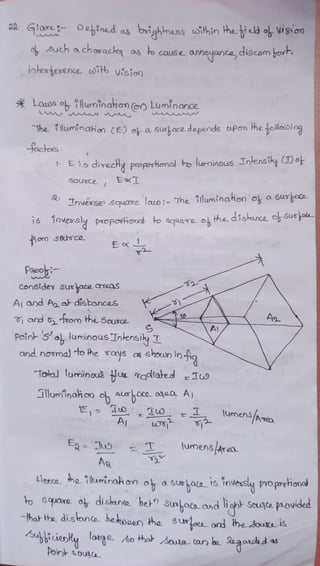 22. Glare :- Defined as brightness within the field of vision
of such a character as to cause annoyance, discomfort,
interference with vision
* Laws of illumination (or) Luminance
The illumination (E) of a surface depends upon the following
factors.
1. E is directly proportional to luminous Intensity (I) of
source, E∝I
2. Inverse square law :- The illumination of a surface
is inversly propotional to square of the distance of surface
from source.
E ∝ 1/r²
Proof :-
consider surface areas
A1 and A2 at distances
r1 and r2 from the source
Point 'S' of luminous Intensity I
and normal to the rays as shown in fig
r2
r1
S
ω
A1
A2
Total luminous flux radiated = Iω
Illumination of surface area A1
E1 = Iω/A1 = Iω/ωr1² = I/r1² lumens/Area
E2 = Iω/A2 = I/r2² lumens/Area.
Hence the illumination of a surface is inversly proportional
to square of distance betⁿ surface and light source provided
that the distance between the surface and the source is
sufficiently large so that source can be regarded as
Point source